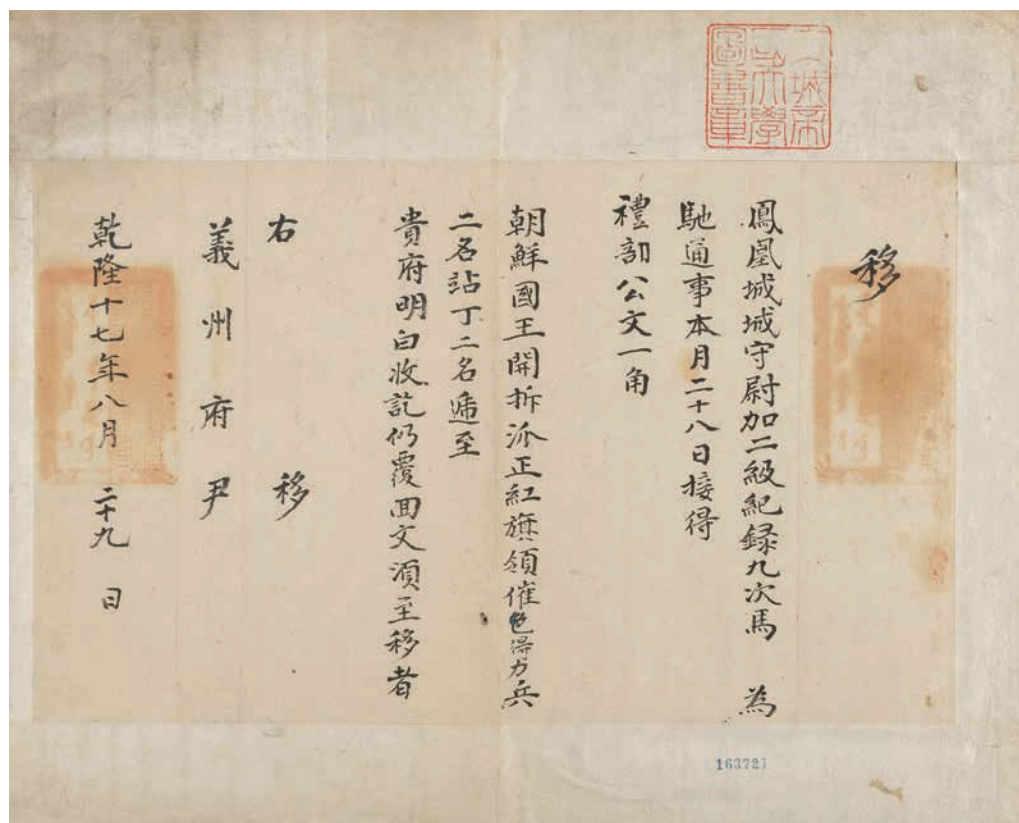 移
鳳凰城城守尉加二級紀錄九次馬 為
馳通事本月二十八日接得
禮部公文一角
朝鮮國王開拆派正紅旗領催色得力兵
二名站丁二名遞至
貴府明白收訖仍覆回文須至移者
右 移
義州府尹
乾隆十七年八月 二十九 日
163721